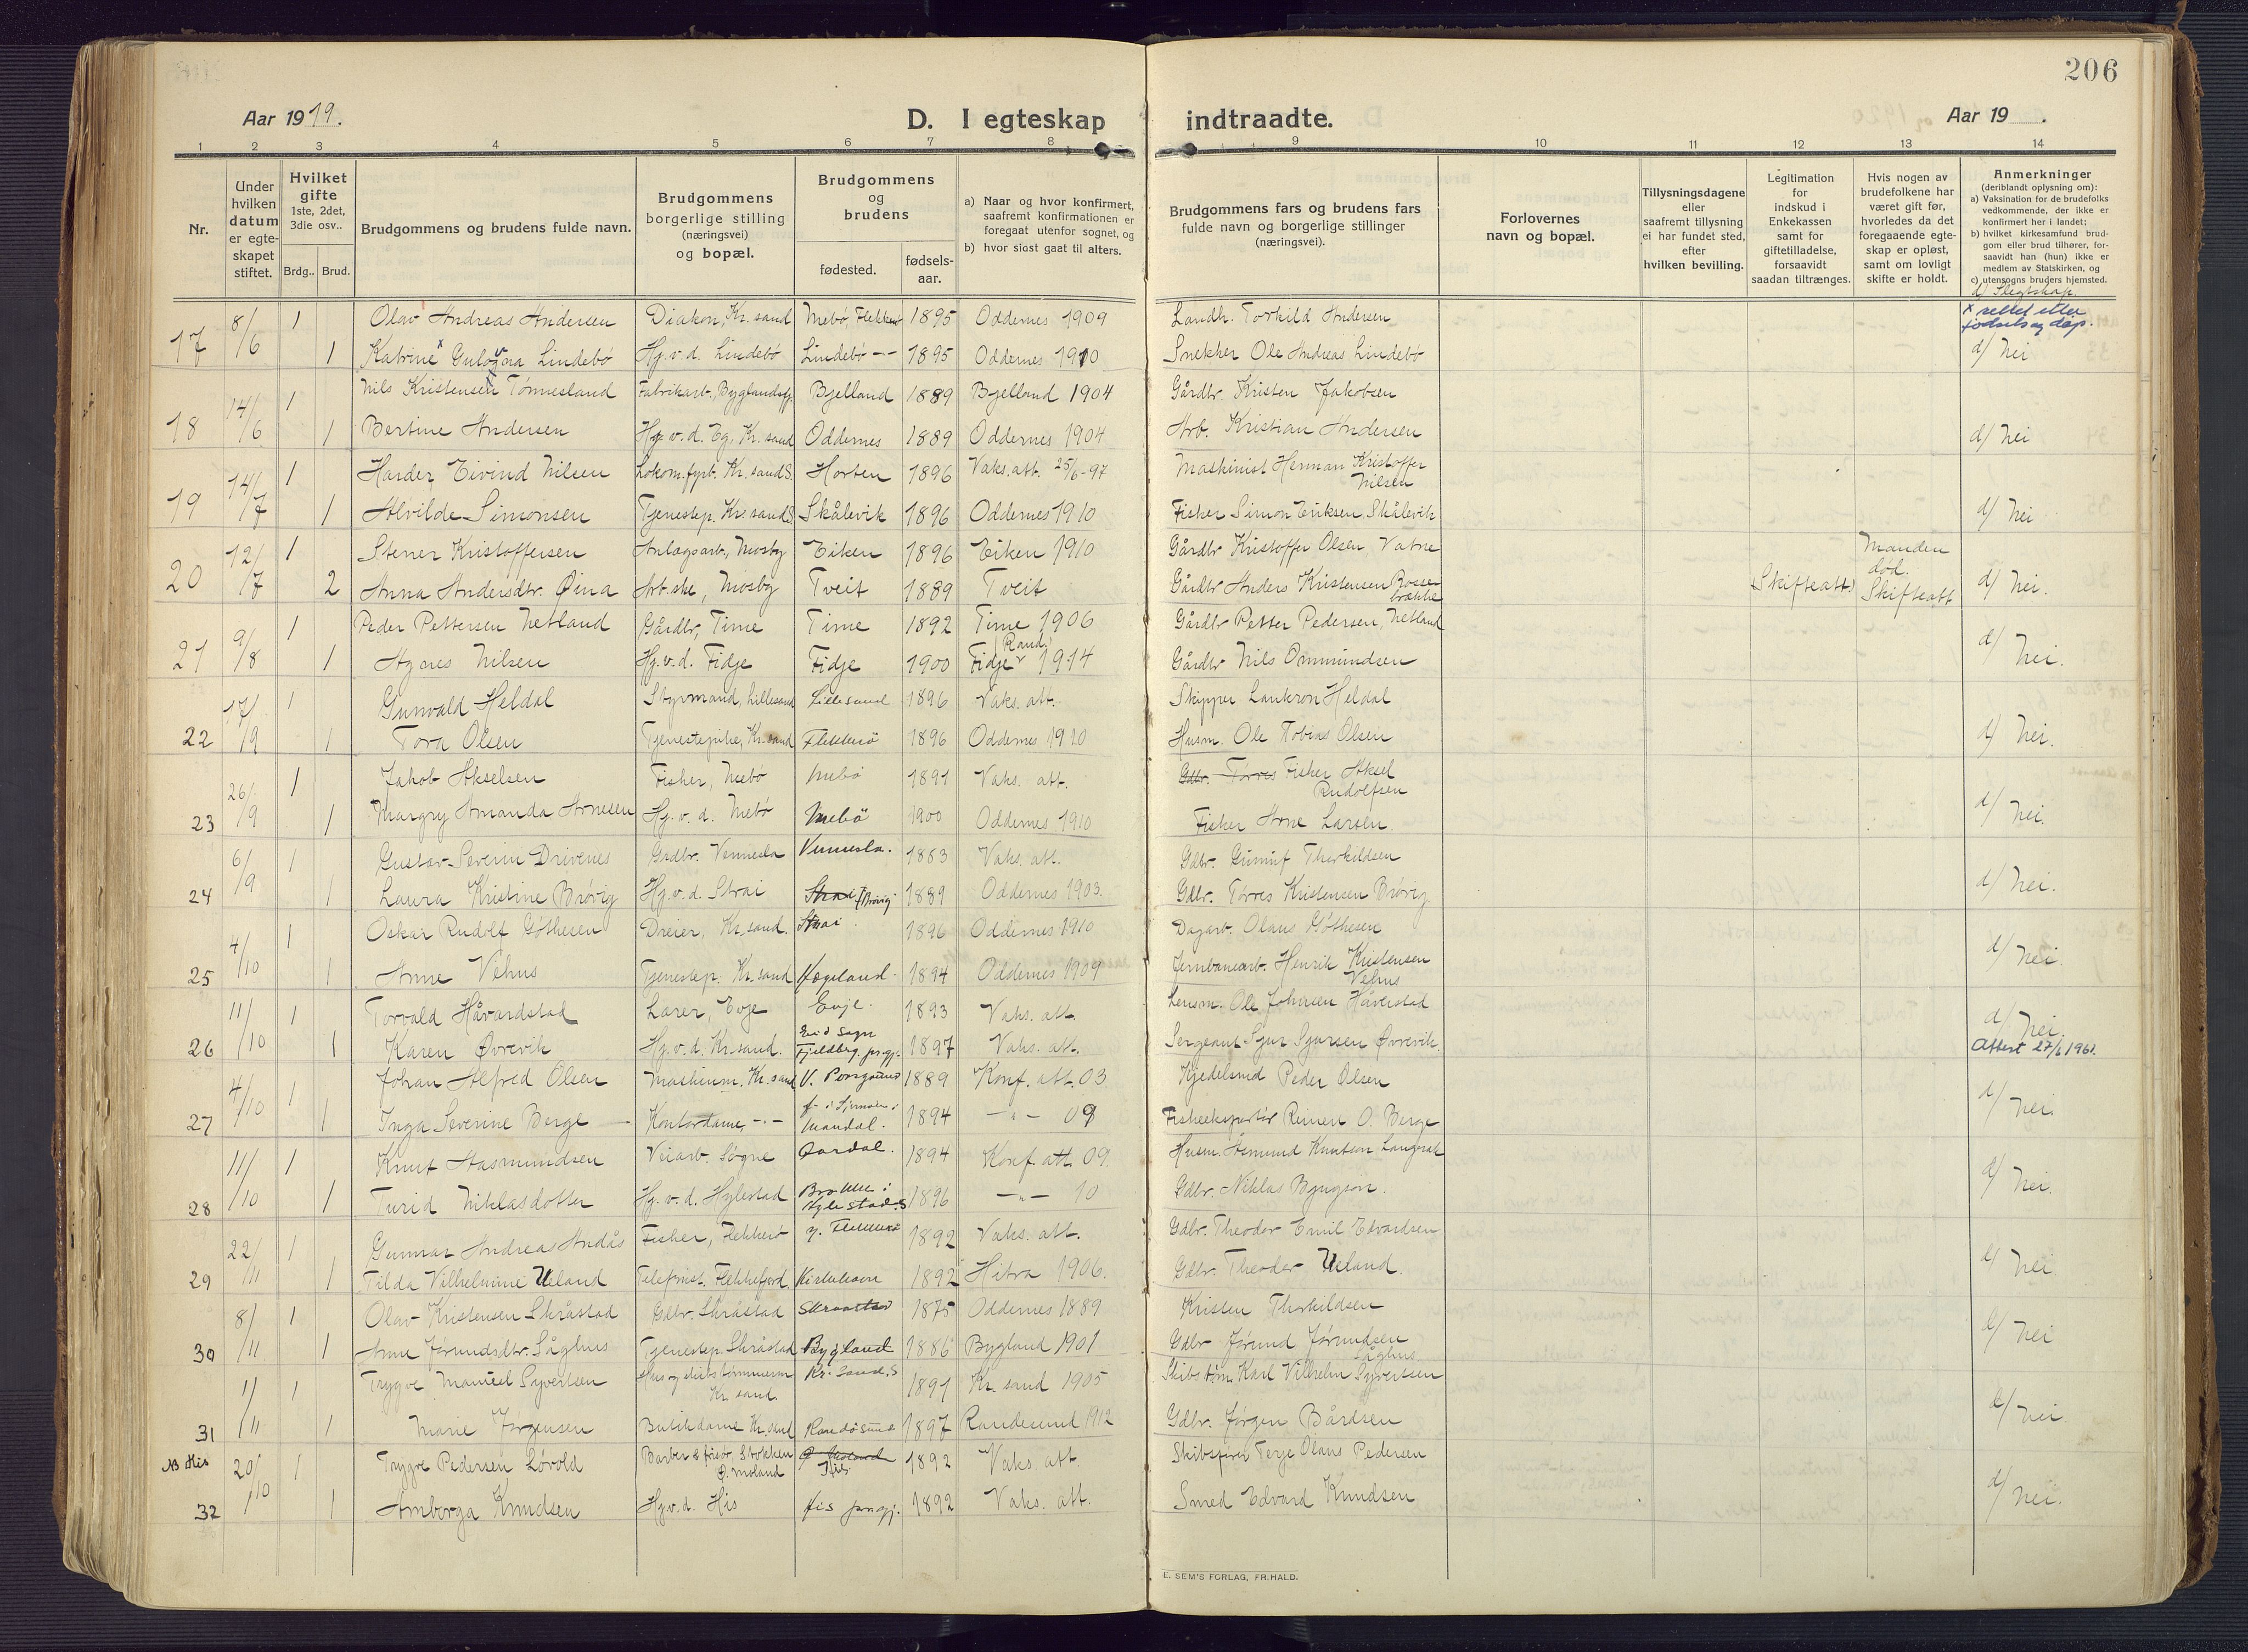 206
Aar 1919.
D. I egteskap indtraadte.
Aar 19 .
1 2 3 4 5 6 7 8 9 10 11 12 13 14
Nr.
Under hvilken datum er egteskapet stiftet.
Hvilket gifte 1ste, 2det, 3die osv..
Brdg.. Brud.
Brudgommens og brudens fulde navn.
Brudgommens borgerlige stilling (næringsvei) og bopæl.
Brudgommens og brudens
fødested. fødselsaar.
a) Naar og hvor konfirmert, saafremt konfirmationen er foregaat utenfor sognet, og
b) hvor sidst gaat til alters.
Brudgommens fars og brudens fars fulde navn og borgerlige stillinger (næringsvei).
Forlovernes navn og bopæl.
Tillysningsdagene eller saafremt tillysning ei har fundet sted, efter hvilken bevilling.
Legitimation for indskud i Enkekassen samt for giftetilladelse, forsaavidt saadan tiltrænges.
Hvis nogen av brudefolkene har været gift før, hvorledes da det foregaaende egteskap er opløst, samt om lovligt skifte er holdt.
Anmerkninger (deriblandt oplysning om):
a) Vaksination for de brudefolks vedkommende, der ikke er konfirmert her i landet;
b) hvilket kirkesamfund brudgom eller brud tilhører, forsaavidt han (hun) ikke er medlem av Statskirken, og
c) utensogns bruders hjemsted.
d) Slegtskap.
8/6 1 Olav Andreas Andersen Diakon, Kr.sand Mebø, Flekkerø 1895 Oddernes 1909 Landh. Torkild Andersen x rettet etter fødsels og dåp.
17 1 Katrine Gulovna Lindebø Hj.v.d. Lindebø Lindebø -"- 1895 Oddernes 1910 Snekker Ole Andreas Lindebø d/ Nei
14/6 1 Nils Kristensen Tønnesland Fabrikarb., Byglandsfj. Bjelland 1889 Bjelland 1904 Gårdbr. Kristen Jakobsen
18 1 Bertine Andersen Hj.v.d. Eg, Kr.sand Oddernes 1889 Oddernes 1904 Arb. Kristian Andersen d/ Nei
14/7 1 Harder Eivind Nilsen Lokom.fyrb. Kr.sand S. Horten 1896 Vaks.att. 25/6-97 Maskinist Herman Kristoffer Nilsen
19 1 Alvilde Simonsen Tjenestep. Kr.sand S. Skålevik 1896 Oddernes 1910 Fisker Simon Eriksen, Skålevik d/ Nei
12/7 1 Stener Kristoffersen Anlægsarb., Mosby Eiken 1896 Eiken 1910 Gårdbr Kristoffer Olsen, Vatne
20 2 Anna Andersdtr. Øina Arb.ske, Mosby Tveit 1889 Tveit Gårdbr Anders Kristensen (Skifteatt) Manden død. Skifteatt d/ Nei.
9/8 1 Peder Pettersen Netland Gårdbr, Time Time 1892 Time 1906 Gårdbr Petter Pedersen, Netland
21 1 Agnes Nilsen Hj.v.d. Fidje Fidje 1900 Fidje 1914 Gårdbr Nils Ommundsen d/ Nei.
17/9 1 Gunvald Heldal Styrmand, Lillesand Lillesand 1896 Vaks. att. Skipper Lankron Heldal
22 1 Tora Olsen Tjenestepike, Kr.sand Flekkerø 1896 Oddernes 1910 Husm. Ole Tobias Olsen d/ Nei.
26/9 1 Jakob Akselsen Fisker, Mebø Mebø 1891 Vaks. att. Gdbr. Torres Fisker Aksel Rudolfsen
23 1 Margry Amanda Arnesen Hj.v.d. Mebø Mebø 1900 Oddernes 1910 Fisker Arne Larsen. d/ Nei.
6/9 1 Gustav Severin Drivenes Grdbr. Vennesla Vennesla. 1883 Vaks. att. Gdbr. Gunuf Therkildsen
24 1 Laura Kristine Brøvig Hj.v.d. Strai Strai Brøvig 1889 Oddernes 1903. Gdbr. Torres Kristensen Brøvig d/ Nei.
4/10 1 Oskar Rudolf Gøthesen Dreier, Kr.sand. Strai 1896 Oddernes 1910 Dagarb. Olaus Gøthesen
25 1 Anne Vehus Tjenestep. Kr.sand Hægeland. 1894 Oddernes 1909 Jernbanearb. Henrik Kristensen Vehus d/ Nei.
11/10 1 Torvald Håvardstad Lærer, Evje Evje. 1893 Vaks. att. Lensm. Ole Johnsen Håverstad
26 1 Karen Øvrevik Hj.v.d. Kr.sand. Eid sogn Fjeldberg pr.gj. 1897 Vaks. att. Sergeant Sjur Sjursen Øvrevik. d/ Nei. Attest 27/6 1961.
4/10 1 Johan Alfred Olsen Maskinm. Kr.sand V. Porsgrund 1889 Konf. att. 03 Kjedelsmid Peder Olsen
27 1 Inga Severine Berge Kontordame -"- Mandal. 1894 -"- 09 Fiskeeksportør Reinert O. Berge d/ Nei.
11/10 1 Knut Aasmundsen Veiarb. Søgne 1894 Konf. att. 09 Husm. Asmund Knutson
28 1 Turid Niklasdotter Hj.v.d. Hylestad Brokke i Hylestad. S 1896 -"- 10 Gdbr. Niklas Bjugson. d/ Nei.
22/11 1 Gunnar Andreas Andås Fisker, Flekkerø Y. Flekkerø 1892 Vaks. att. Gdbr. Theodor Emil Edvardsen
29 1 Tilda Vilhelmine Ueland Telefonist. Flekkefjord. Kirkehavn 1892 Hitra 1906. Gdbr. Theodor Ueland. d/ Nei.
8/11 1 Olav Kristensen Skråstad Gdbr. Skråstad Skraastad 1875 Oddernes 1889 Kristen Therkildsen
30 1 Anne Jørundsdtr. Såghus Tjenestep. Skråstad Bygland 1886 Bygland 1901 Gdbr Jørund Jørundsen Såghus d/ Nei
1/11 1 Trygve Manuel Syvertsen Hus og skibstømmerm Kr.sand Kr. Sand. S 1891 Kr. sand 1905 Skibstøm. Karl Vilhelm Syvertsen
31 1 Marie Jørgensen Butikdame Kr.sand Randøsund 1897 Randesund 1912 Gdbr. Jørgen Bårdsen d/ Nei
NB His 20/10 1 Trygve Pedersen Løvold Barber & frisør, Stokken Ø. Moland 1892 Vaks. att. Skibsfører Terje Olaus Pedersen
32 1 Amborga Knudsen Hj.v.d. His His prgj. 1892 Vaks. att. Smed Edvard Knudsen d/ Nei.
E. SEM'S FORLAG, FR.HALD.